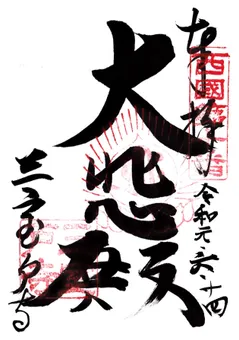 奉拝
西國
令和元 十四
大悲殿
三室戸寺